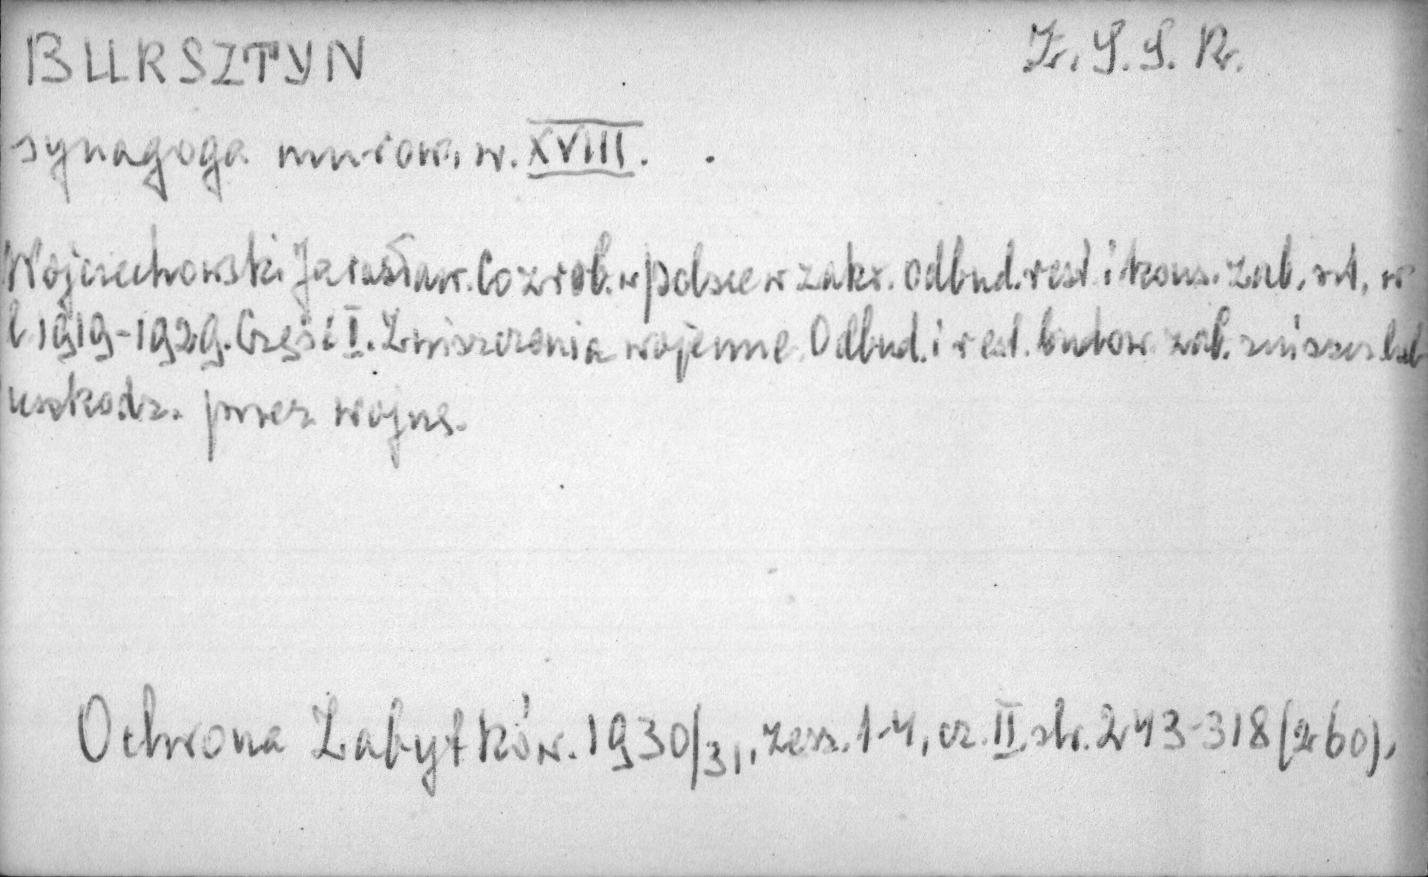 BURSZTYN
Z.S.S.R.
synagoga murow. w. XVIII.
Wojciechowski Jarosław. Co zrob. w Polsce w zakr. odbud. rest. i kons. zab. szt. w
l 1919-1929. Część I. Zniszczenia wojenne. Odbud. i rest. budow. zab. zniszcz. lub
uszkodz. przez wojnę.
Ochrona Zabytków. 1930/31, zesz. 1-4, cz. II, str. 243-318 (260),